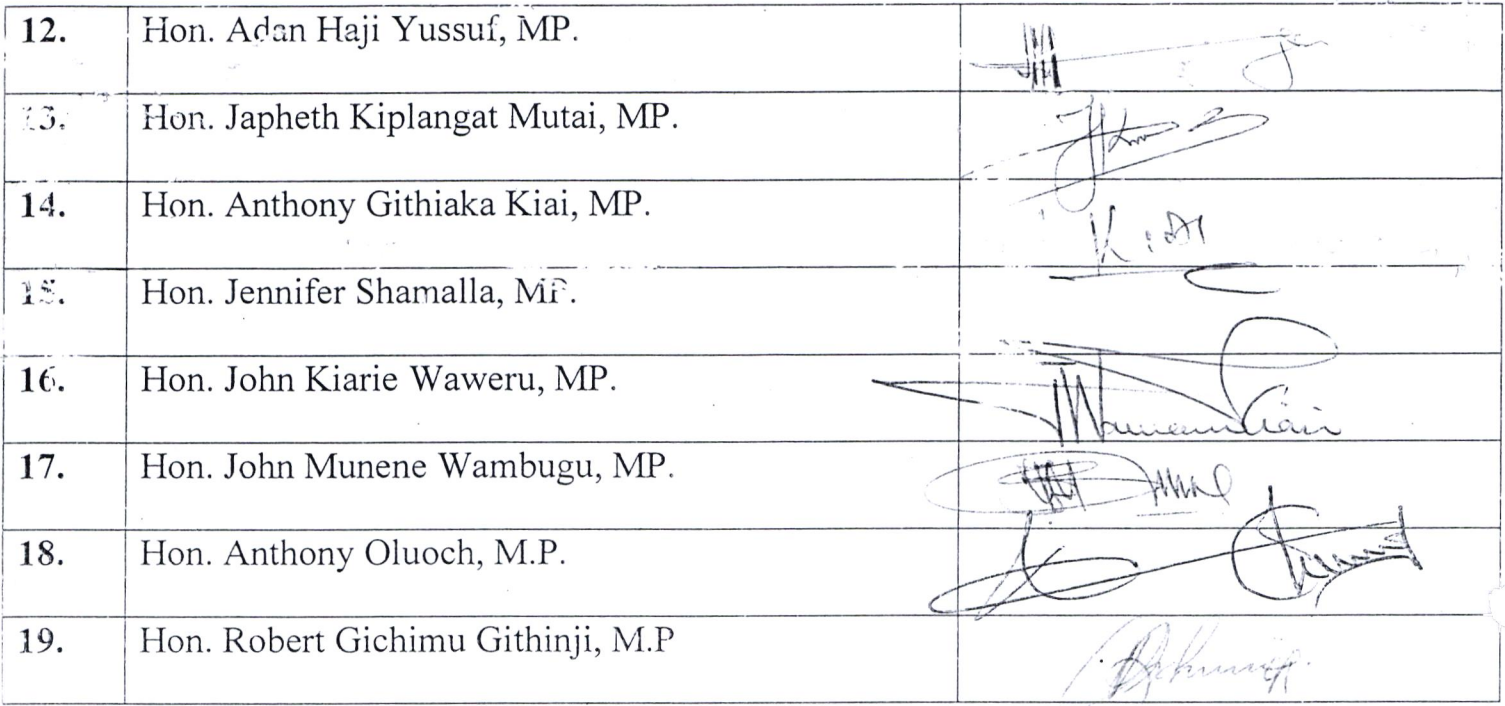 12. Hon. Adan Haji Yussuf, MP.
13. Hon. Japheth Kiplangat Mutai, MP.
14. Hon. Anthony Githiaka Kiai, MP.
15. Hon. Jennifer Shamalla, MP.
16. Hon. John Kiarie Waweru, MP.
17. Hon. John Munene Wambugu, MP.
18. Hon. Anthony Oluoch, M.P.
19. Hon. Robert Gichimu Githinji, M.P